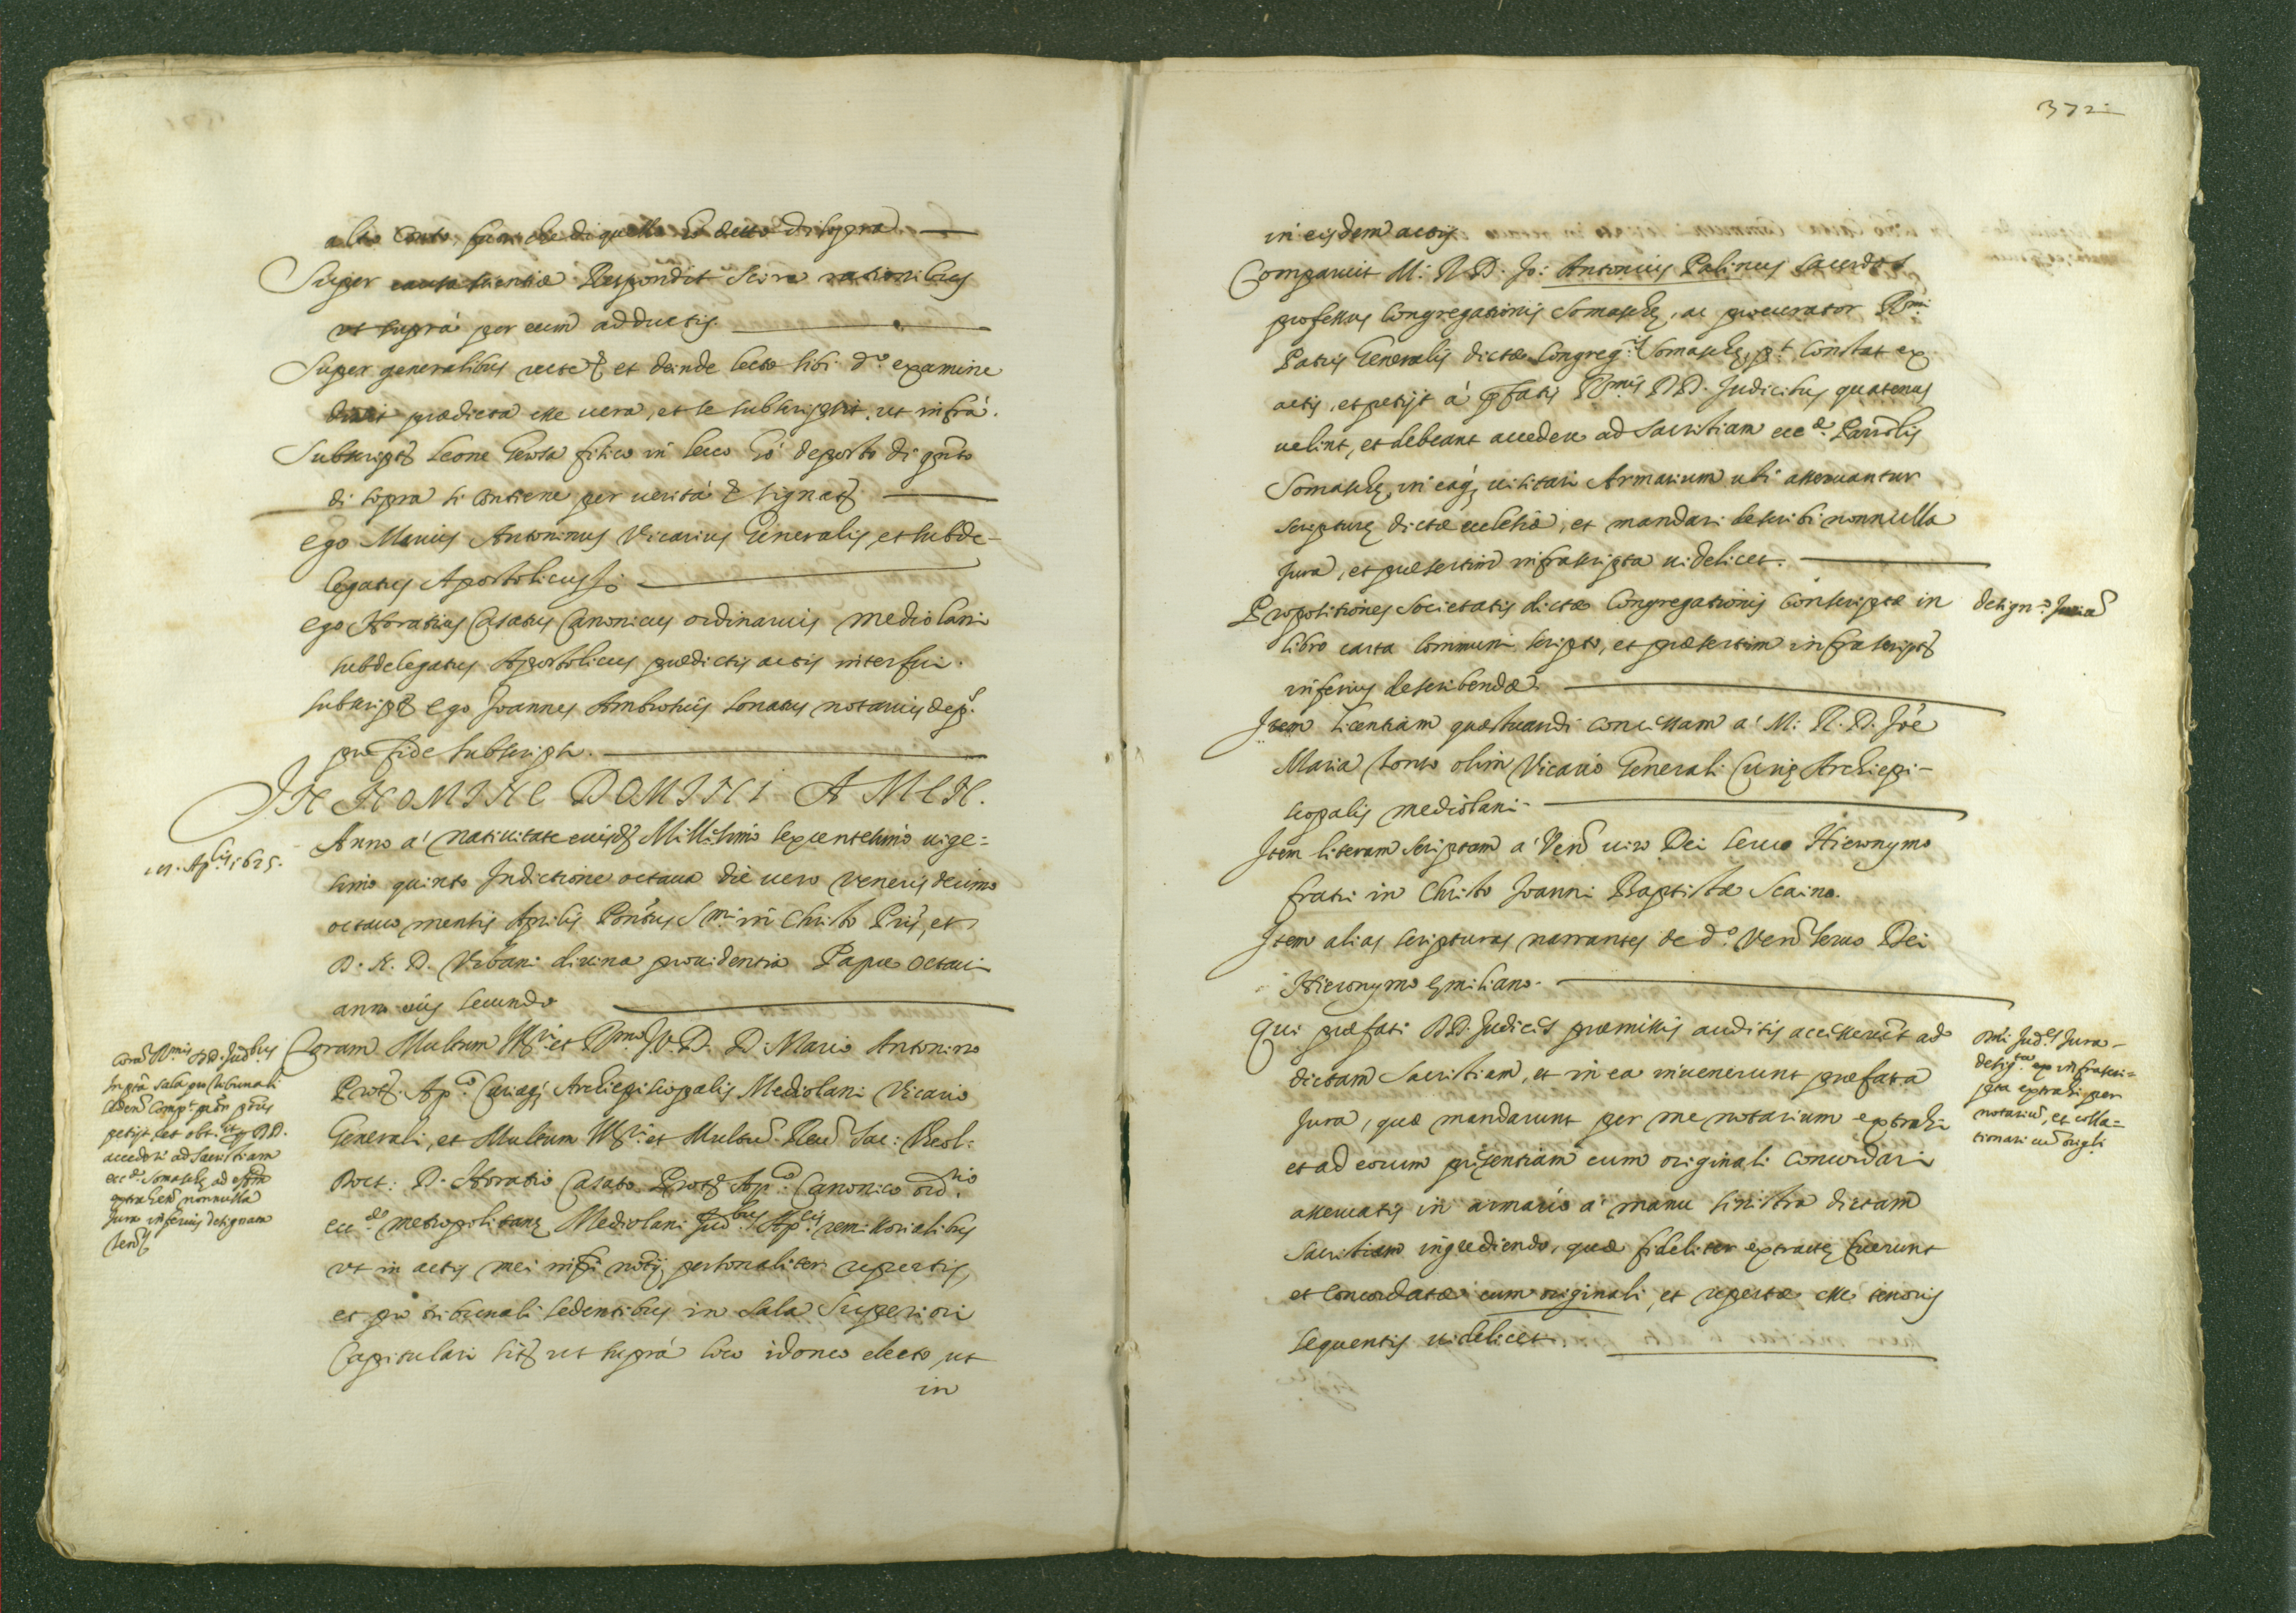 altro conto fuor che di quello hò detto di sopra
Super causa scientiæ Respondit scire rationibus
ut suprà per eum adductis.
Super generalibus recte et deinde lecto sibi d.º examine
dixit prædicta esse uera, et se subscripsit ut infrà.
Subscript Leone in Lecco hò deposto di qnto
di sopra si contiene per uerità & signat
ego Marius Antoninus Vicarius Generalis et subde-
legatus Apostolicus
ego Horatius Casatus Canonicus ordinarius mediolani
subdelegatus Apostolicus prædictis actis interfui.
subscript ego Joannes Ambrosius Lonatus notarius dep.
pro fide subscripsi.
IN NOMINE DOMINI AMEN.
Anno à natiuitate eiusd Millesimo sexcentesimo uige=
simo quinto Indictione octaua die uero Veneris decimo
octauo mensis Aprilis Pontus S.mi in Christo Pris, et
D. N. D. Vrbani diuina prouidentia Papæ Octaui
anno eius secundo
Aplis 1625.
Coram Multum et Rmo D. D. Mario Antonino
Prot. Ap.co Curiæq; Archiepiscopalis Mediolani Vicario
Generali, et Multum et Multum Reu Sac: Theol:
Doct: D. Horatio Casato Prot Ap.co Canonico ord.rio
ecc.æ metropolitanę Mediolani Jud.bus Ap.cis remissorialibus
ut in actis mei nisi notij personaliter repertis,
et pro tribunali sedentibus in sala Superiori
Capitulari sit ut suprà loco idoneo electo, ut
in
corā Rmis DD. Judbus
In pta sala pro tribunali
seden comp.t
petijt, et obt.
accedere ad Sacristiam
ecc.æ Somaschę ad
extrahen nonnulla
Jura inferius designam
372
in eisdem actis
Comparuit M: R. D. Jo: Antonius Palinus sacerdos
professus Congregationis Somaschę, ac procurator Rmi
Patris Generalis dictæ Congreg.is Somaschę, pt constat ex
actis, et petijt à pfatis Rmis DD. Judicibus quatenus
uelint, et debeant accedere ad Sacristiam ecc.æ Parrolis
Somaschę, in eaq; uisitari Armarium ubi asseruantur
scripturę dictæ ecclesiæ, et mandari describi nonnulla
Jura, et præsertim infrascripta uidelicet.
Propositiones Societatis dictæ Congregationis conscriptæ in
libro carta communi scripto, et præsertim infrascript
inferius describendæ
design.º Jurium
Item licentiam quæstuandi concessam à M: R. D. Joe
Maria Tonso olim Vicario Generali Curię Archiepi-
scopalis mediolani
Item literam scriptam à Ven uiro Dei seruo Hieronymo
fratri in Christo Joanni Baptistæ Scaino.
Item alias scripturas narrantes de d.º Ven seruo Dei
Hieronymo Emiliano.
Qui præfati DD. Judices præmissis auditis accesserut ad
dictam Sacristiam, et in ea inuenerunt præfata
Jura, quæ mandarunt per me notarium extrahi
et ad eorum prȩsentiam cum originali concordari
asseruatis in armario à manu sinistra dictam
Sacristiam ingrediendo, quæ fideliter extractę fuerunt
et concordatæ cum originali, et repertæ esse tenoris
sequentis uidelicet
Jud.es Jura
desig.ta infrascri=
pta extrahi per
notariu, et colla=
tionari cu origli